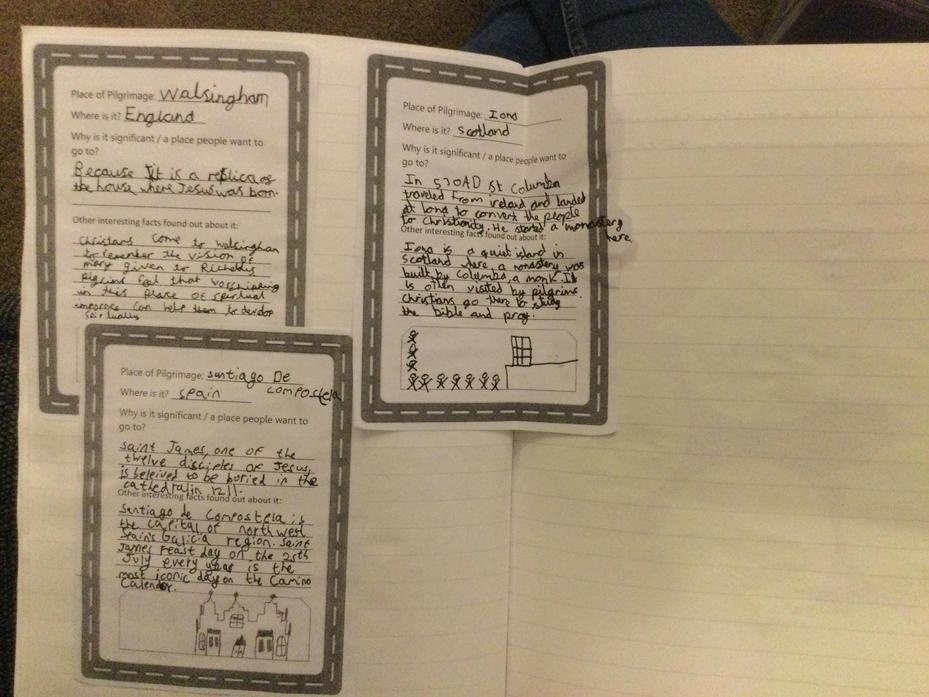 Place of Pilgrimage: Walsingham
Where is it? England
Why is it significant / a place people want to
go to?
Because It is a replica of
the house where Jesus was born.
Other interesting facts found out about it:
Christans come to walsinghan
to remenber the vision of
mary given to Richeldis
Pilgrims feel that worshipping
in this place of spiritual
can help them to develop
spiritually
Place of Pilgrimage: Iona
Where is it? Scotland
Why is it significant / a place people want to
go to?
In 570AD St Columba
traveled from ireland and landed
at Iona to convert the people
to Christianity. He started a monastery
here.
Other interesting facts found out about it:
Iona is a quiet island in
Scotland where a monastery was
built by Columba, a monk. It
is often visited by pilgrims.
Christians go there to study
the bible and pray.
Place of Pilgrimage: Santiago De
Compostela
Where is it? Spain
Why is it significant / a place people want to
go to?
Saint James, one of the
twelve disciples of Jesus,
is beleived to be buried in the
cathedral in 1211.
Other interesting facts found out about it:
Santiago de Compostela is
the capital of northwest
Spain's Galicia region. Saint
James feast day on the 25th
July every year is the
most iconic day on the Camino
Calender.